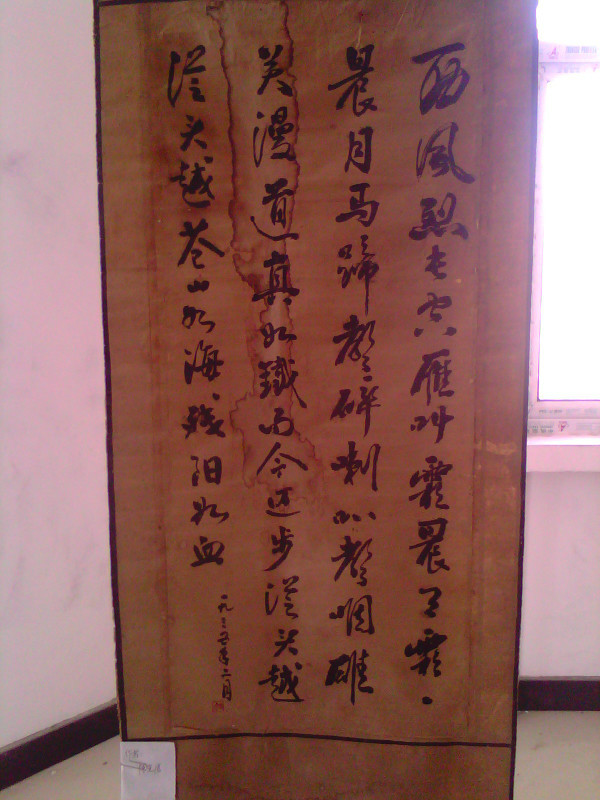 西風烈长空雁叫霜晨月霜
晨月马蹄聲碎喇叭聲咽雄
关漫道真如鐵而今迈步從头越
從头越苍山如海残阳如血
一九三五年二月